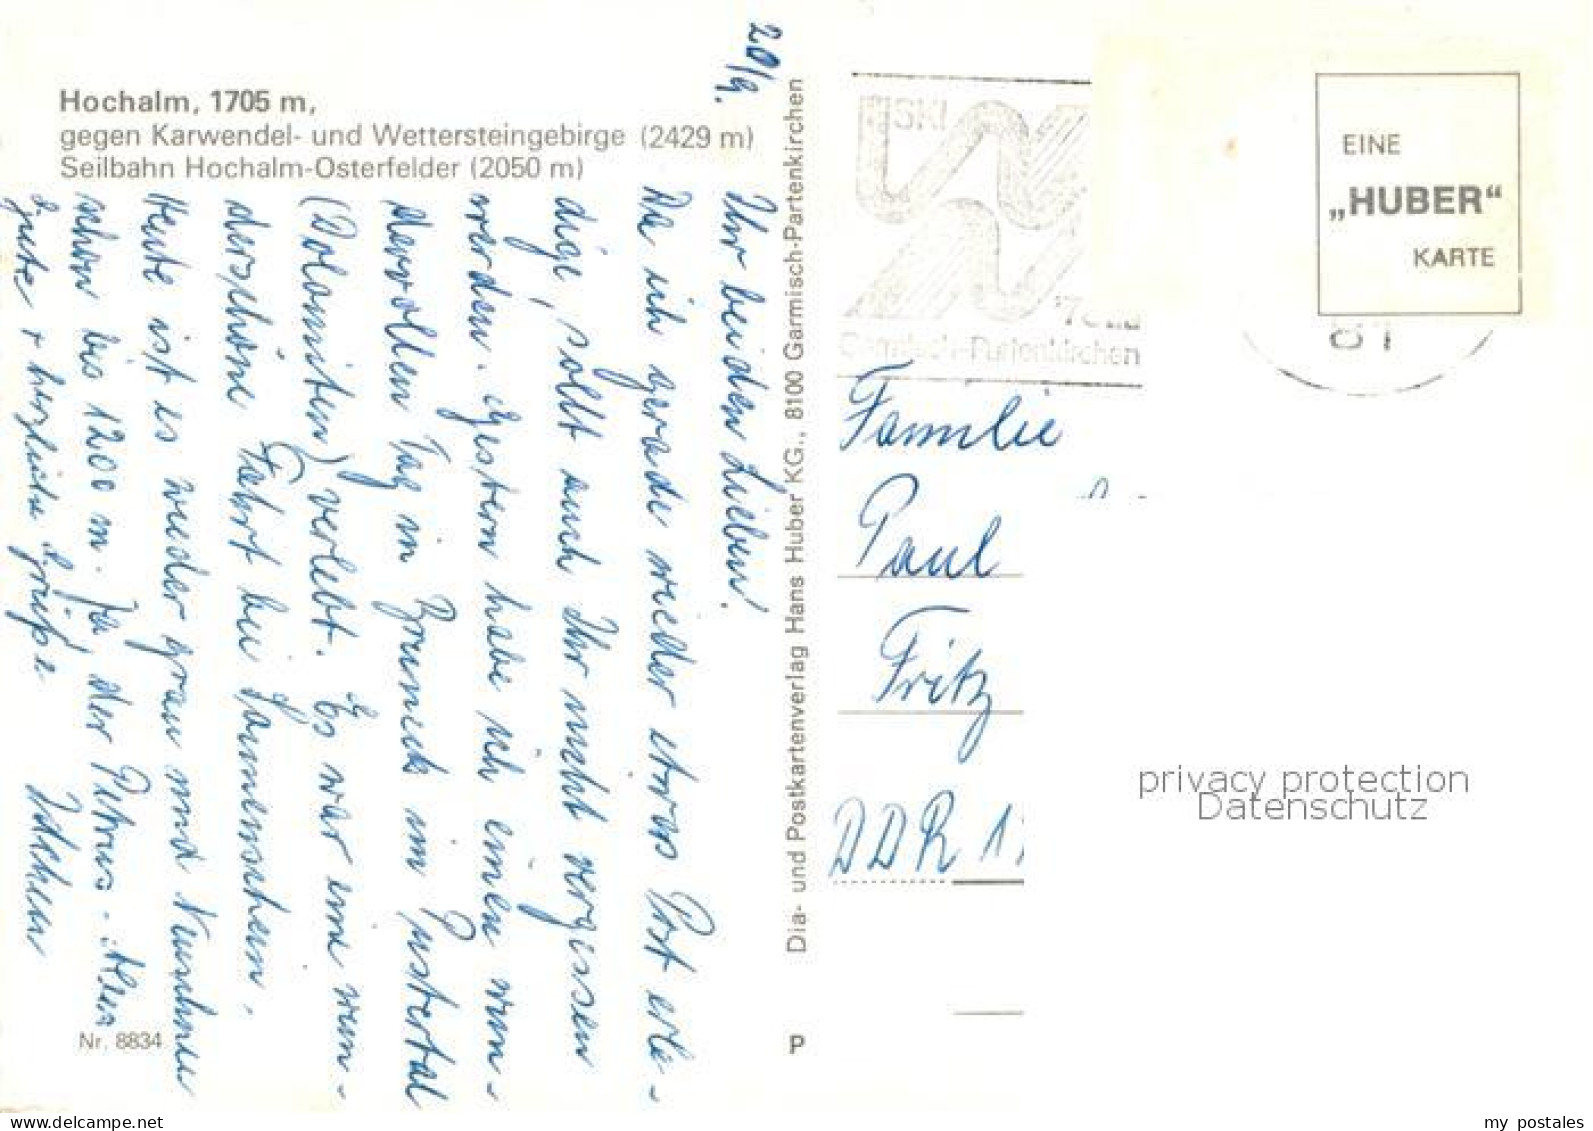 Hochalm, 1705 m,
gegen Karwendel- und Wettersteingebirge (2429 m)
Seilbahn Hochalm-Osterfelder (2050 m)
20/9.
Ihr beiden Lieben!
Da ich gerade wieder etwas Post erle-
dige, sollt auch Ihr nicht vergessen
werden. Gestern habe ich einen wun-
dervollen Tag in Bruneck im Pustertal
(Dolomiten) verlebt. Es war eine wun-
derschöne Fahrt bei Sonnenschein.
Heute ist es wieder grau und Neuschnee
schon bis 1200 m. Ja, der Petrus. Alles
Gute + herzliche Grüße
Nr. 8834
Dia- und Postkartenverlag Hans Huber KG., 8100 Garmisch-Partenkirchen
P
SKI
'78
Garmisch-Partenkirchen
EINE
„HUBER“
KARTE
81
Familie
Paul
Fritz
DDR 1
privacy protection
Datenschutz
www.delcampe.net
my_postales